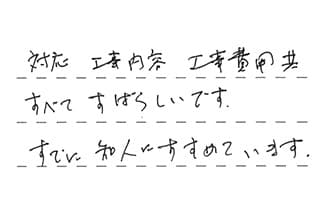 対応 工事内容 工事費用共
すべて すばらしいです.
すでに 知人にすすめています.